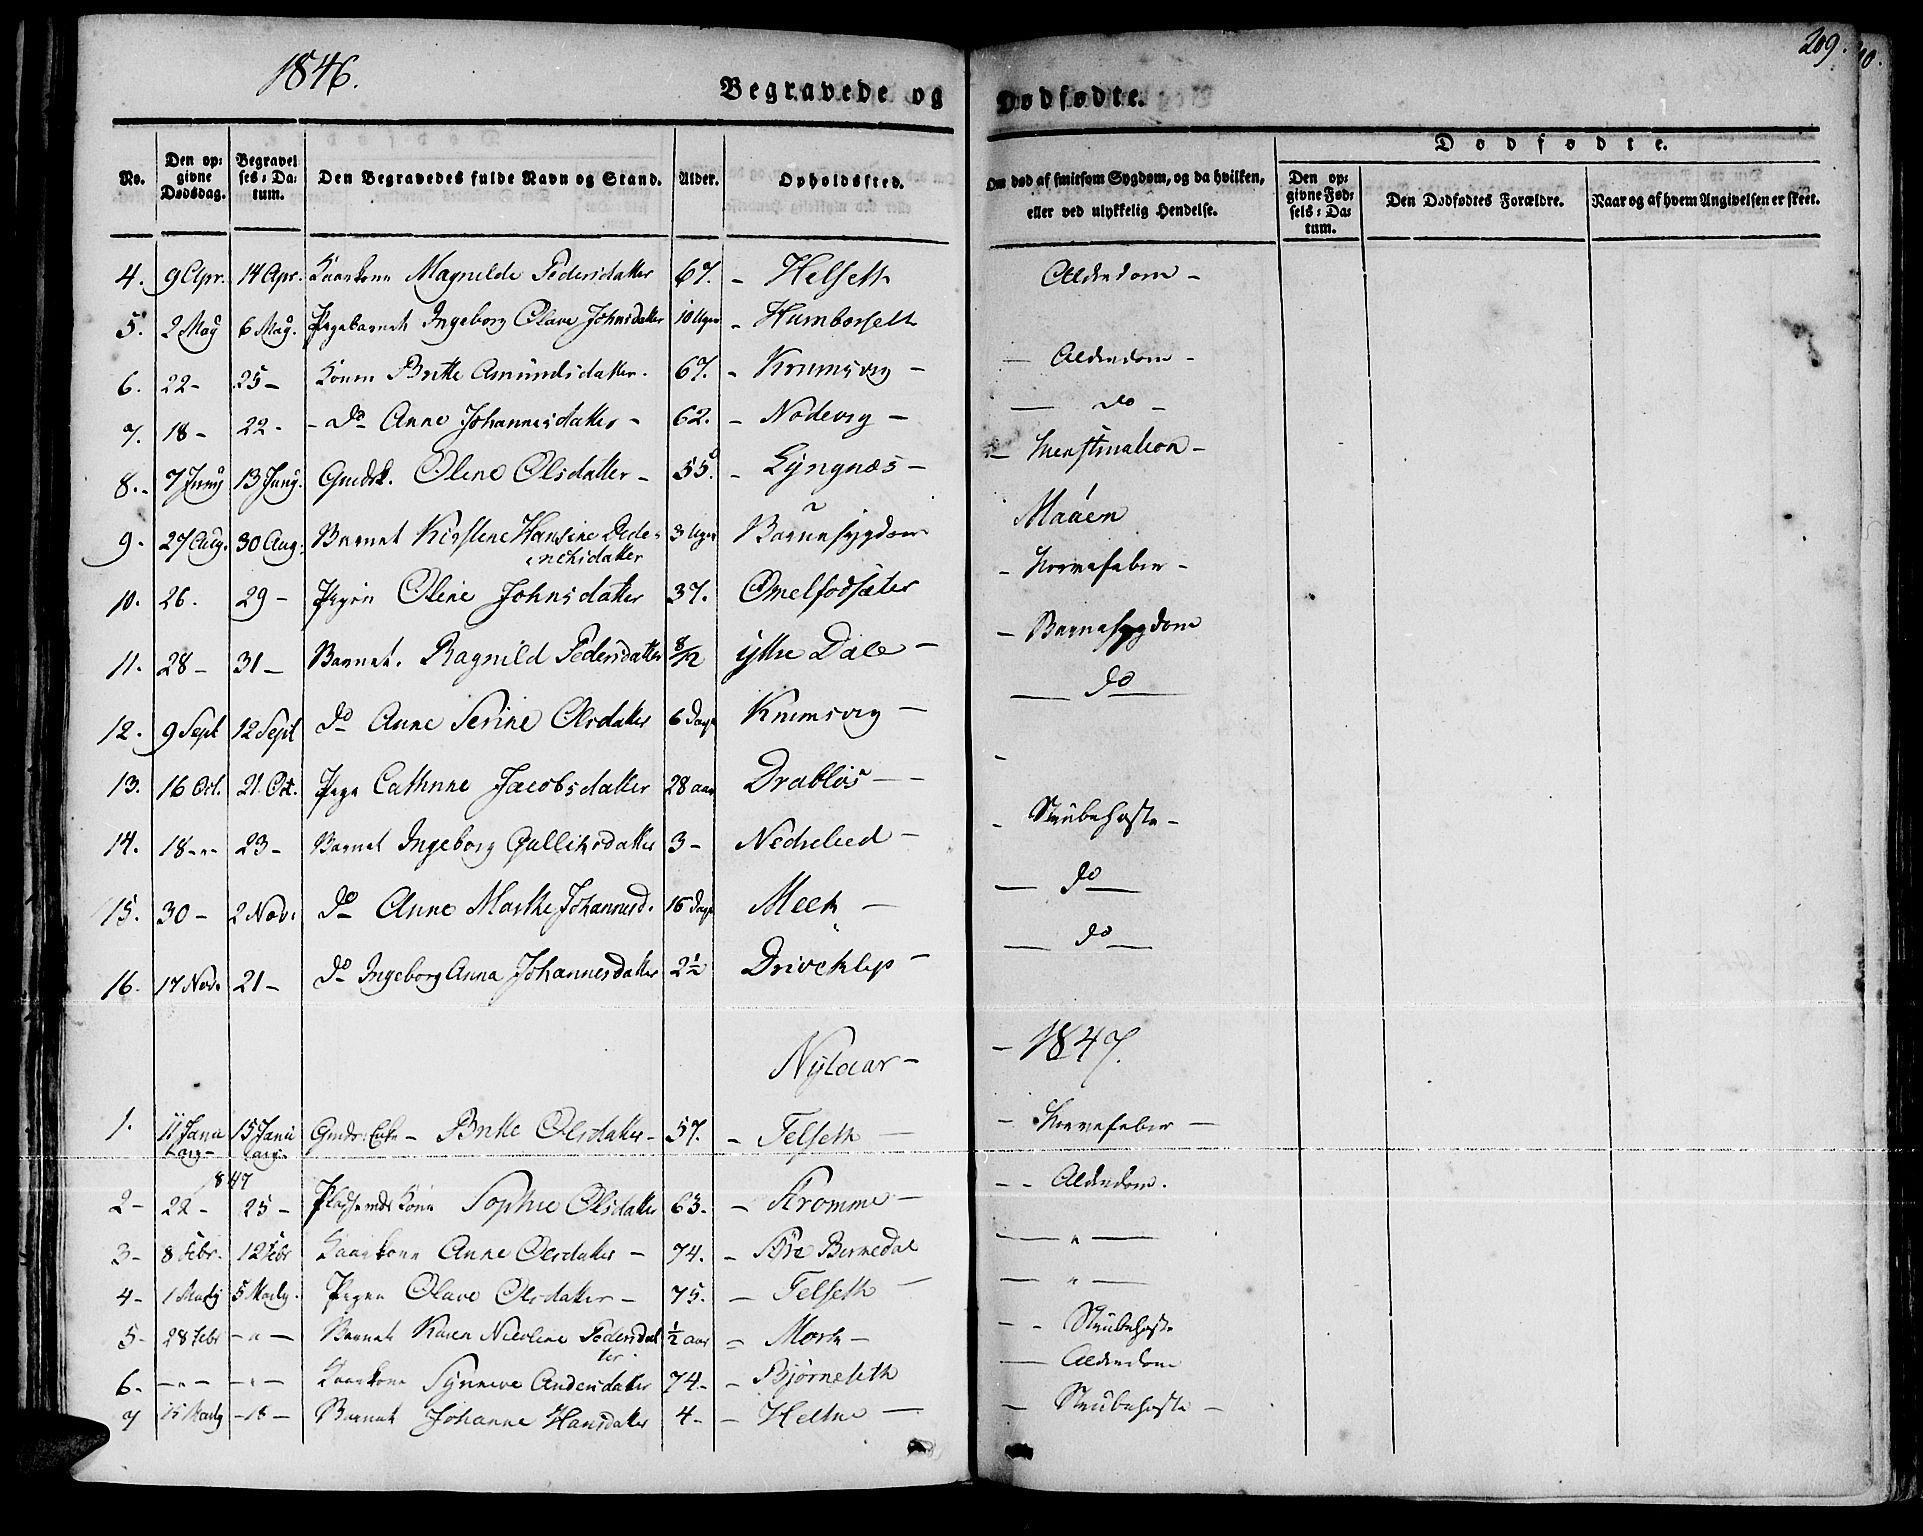 1846.
209.
10.
Begravede og Dødfødte.
No.
Den op-
givne
Dødsdag.
Begravel
ses-Da-
tum.
Den Begravedes fulde Navn og Stand.
Alder.
Opholdssted.
Om død af smitsom Sygdom, og da hvilken,
eller ved ulykkelig Hendelse.
Dødfødte.
Den op-
givne Fød-
sels-Da-
tum.
Den Dødfødtes Forældre.
Naar og af hvem Angivelsen er skeet.
4. 9 Apr. 14 Apr. Kaarkone Magnilde Pedersdatter 67. - Helseth Alderdom -
5. 2 May 6 May. Pigebarnet Ingeborg Olave Johnsdatter 10 Uger - Humborseth
6. 22 - 25 - Konen Britte Amundsdatter. 67. - Krumsvig - — Alderdom -
7. 18 - 22 - - Do Anne Johannesdatter - 62. - Nodevig - — do -
8. - 7 Juny 13 Juny. Gmdsk. Oline Olsdatter - 55. - Lyngnæs -
9. 27 Aug. 30 Aug. Barnet Kirstene Hansine Dide-
richsdatter 3 Uger Barnesygdom Maaen
10. 26. 29 - Pigen Oline Johnsdatter 37. Omelfodsæter - Nervefeber -
11. 28 - 31 - Barnet. Ragnild Pedersdatter 8/12 ytre Dale - - Barnesygdom
12. 9 Sept 12 Sept Do Anne Serine Olsdatter 6 Dage Krumsvig - — do —
13. 16 Oct. 21. Oct. Pige Cathrine Jacobsdatter 28 aar Drabløs - - -
14. 18 - - 23 - Barnet Ingeborg Gulliksdatter 3 - Nedrelied - - Strubehoste -
15. 30 - 2 Nov. Do Anne Marthe Johannesd. 16 Dage Meek - — do —
16. 17 Nov. 21 - Do Ingeborg Anna Johannesdatter 2 1/2 Driveklep - — do —
Nytaar - - 1847.
1. 11 Janu 15 Janu Gmds: Enke - Britte Olsdatter - 57. - Telseth - - Nervefeber -
arg - arg -
1847
2 - 22 - 25 - Pladsemds Kone Sophie Olsdatter 63. - Stromme - - - Alderdom.
3 - 8 Febr. 12 Febr Kaarkone Anne Olsdatter - 74. - Øvre Bermedal — " —
4 - 1 Marty 5 Marty. Pigen Olave Olsdatter - 75. - Telseth - — " —
5 - 28 Febr - " - Barnet Karen Nicoline Pedersdat
ter 1/2 aar - Mork - - - Strubehoste
6. - " - - " - Kaarkone Synneve Andersdatter 74 - - Bjørneleth — Alderdom
7 15 Marty - 18 - Barnet Johanne Hansdatter 4 - - Heltne - - Strubehoste -